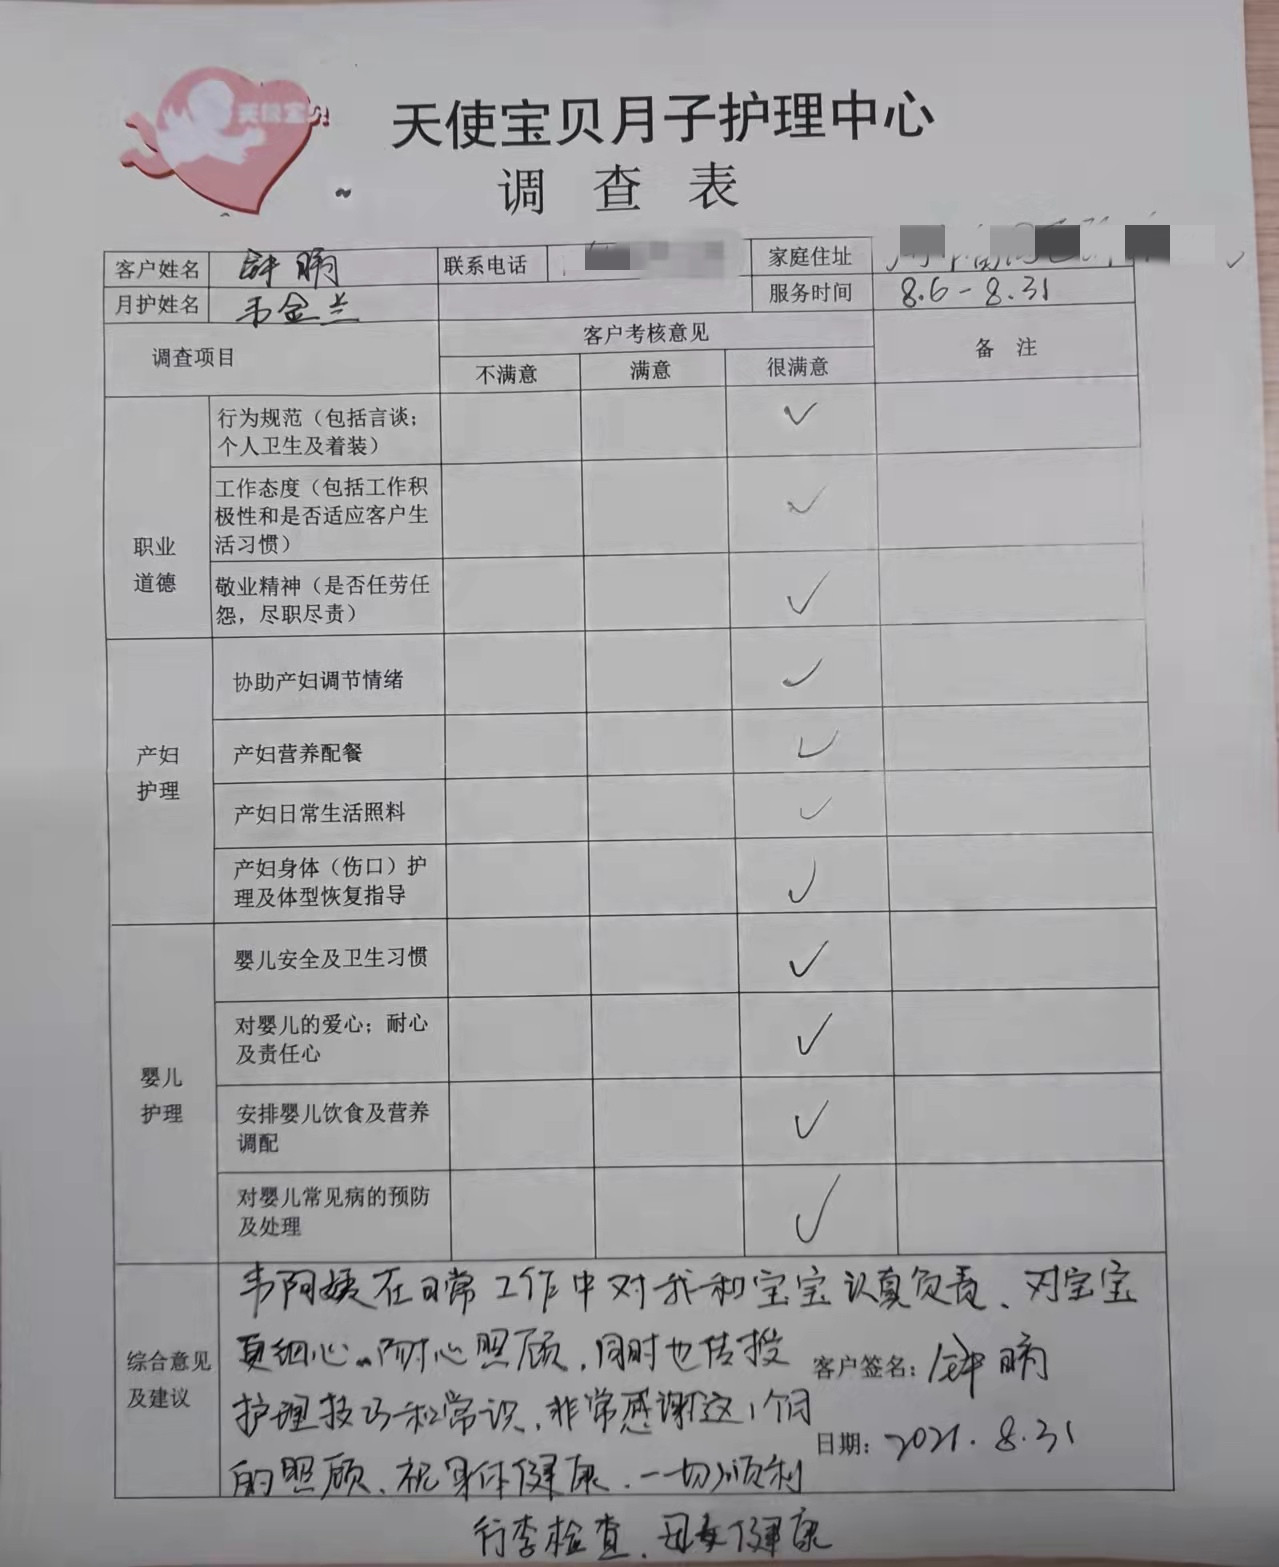 天使宝贝
天使宝贝月子护理中心
调查表
客户姓名 钟 联系电话 家庭住址
月护姓名 韦金兰 服务时间 8.6-8.31
调查项目 客户考核意见 备 注
不满意 满意 很满意
职业
道德
行为规范（包括言谈；
个人卫生及着装） ✓
工作态度（包括工作积
极性和是否适应客户生
活习惯） ✓
敬业精神（是否任劳任
怨，尽职尽责） ✓
产妇
护理
协助产妇调节情绪 ✓
产妇营养配餐 ✓
产妇日常生活照料 ✓
产妇身体（伤口）护
理及体型恢复指导 ✓
婴儿
护理
婴儿安全及卫生习惯 ✓
对婴儿的爱心；耐心
及责任心 ✓
安排婴儿饮食及营养
调配 ✓
对婴儿常见病的预防
及处理 ✓
综合意见
及建议
韦阿姨在日常工作中对我和宝宝认真负责、对宝宝
更细心、耐心照顾，同时也传授
护理技巧和常识，非常感谢这1个月
的照顾、祝身体健康，一切顺利
客户签名：钟
日期：2021.8.31
行李检查，母女健康